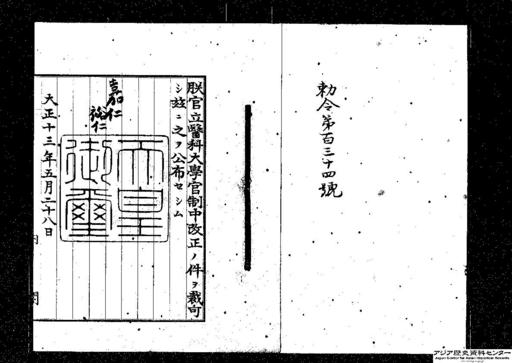 勅令第百三十四號
朕官立醫科大學官制中改正ノ件ヲ裁可
シ玆ニ之ヲ公布セシム
嘉仁
裕仁
天皇御璽
大正十三年五月二十八日
内閣
アジア歴史資料センター
Japan Center for Asian Historical Records